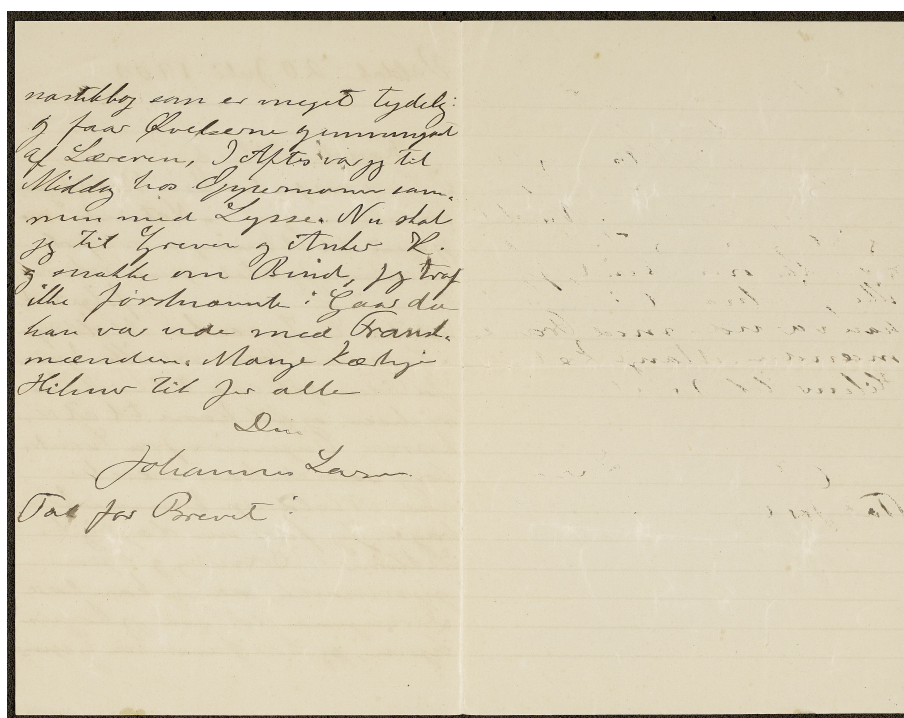 nastikbog som er meget tydelig
og faar Øvelserne gennemgaaet
af Læreren, I Aftes var jeg til
Middag hos Oppermann sam-
men med Lysse. Nu skal
jeg til Greven og Anker K.
og snakke om Bind, jeg traf
ikke førstnævnte i Gaar da
han var ude med Frand-
mændene. Mange kærlige
Hilsner til Jer alle
Din
Johannes Larsen
Tak for Brevet!